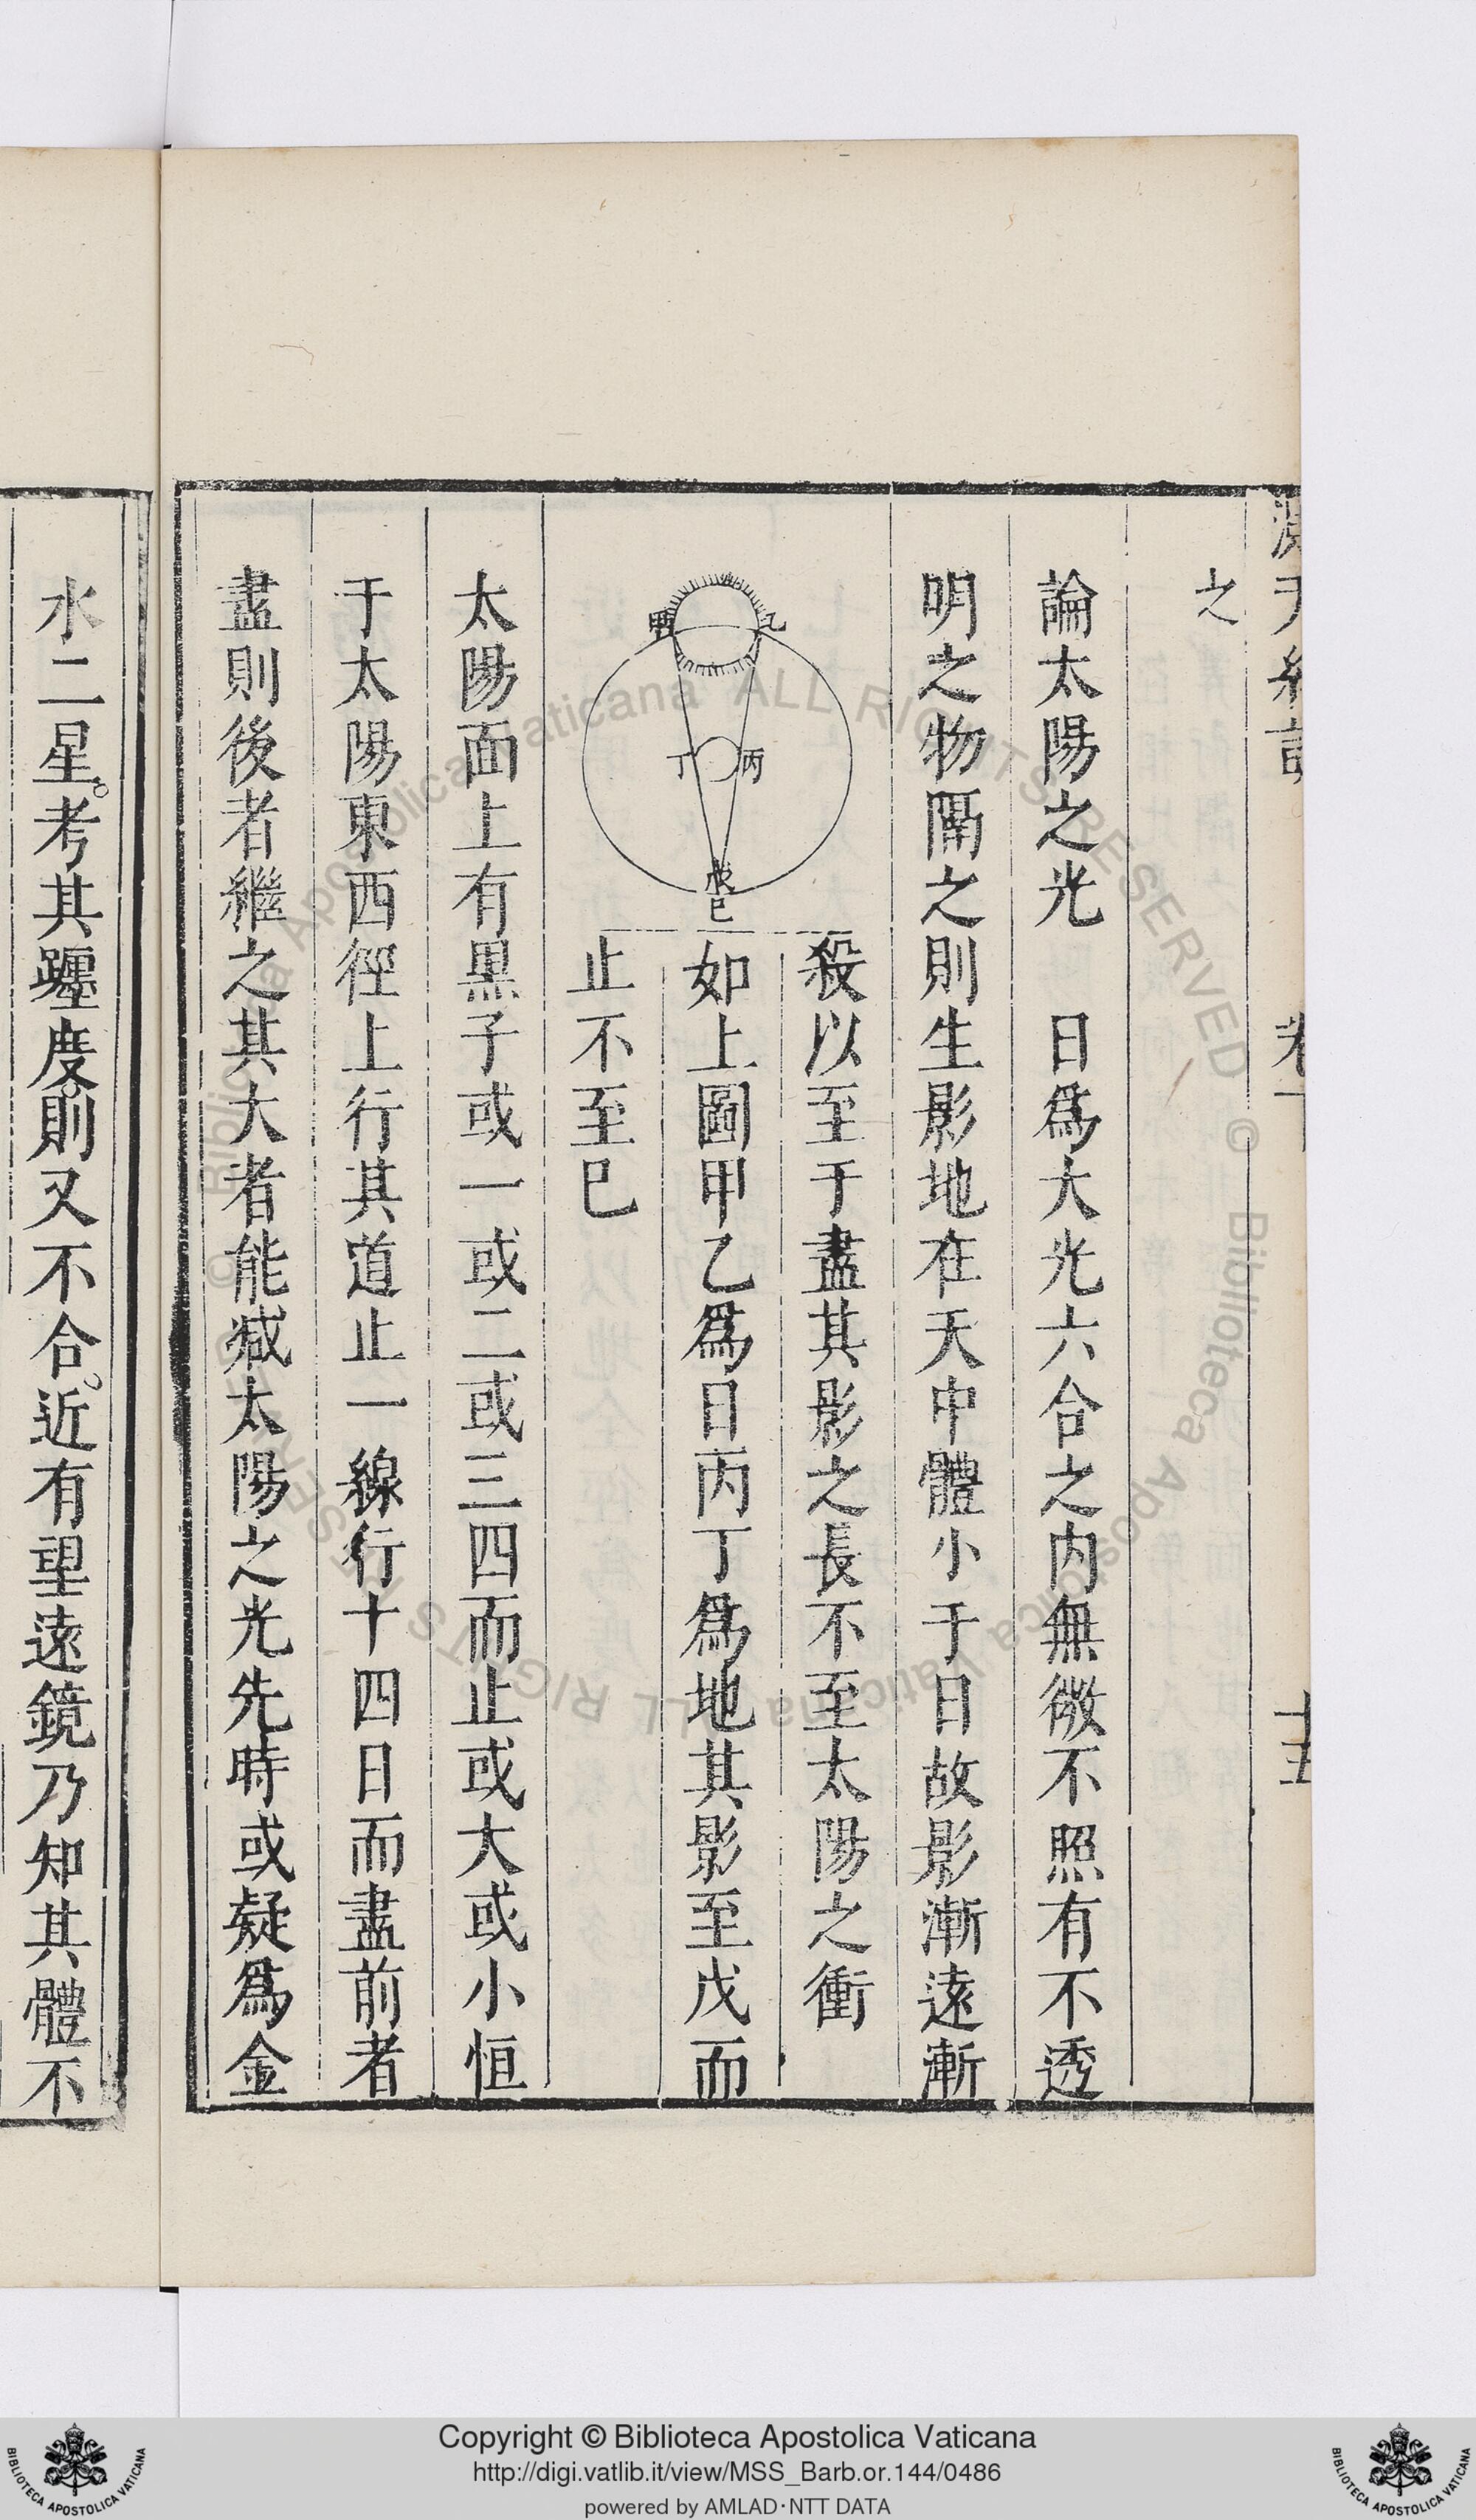 之
論太陽之光　日爲大光六合之内無微不照有不透
明之物隔之則生影地在天中體小于日故影漸遠漸
殺以至于盡其影之長不至太陽之衝
如上圖甲乙爲日丙丁爲地其影至戊而
止不至巳
乙
甲
丙
丁
戊
巳
太陽面上有黒子或一或二或三四而止或大或小恒
于太陽東西徑上行其道止一線行十四日而盡前者
盡則後者繼之其大者能减太陽之光先時或疑爲金
水二星。考其躔度。則又不合。近有望遠鏡乃知其體不
十五
Biblioteca Apostolica Vaticana ALL RIGHTS RESERVED ©
Copyright © Biblioteca Apostolica Vaticana
http://digi.vatlib.it/view/MSS_Barb.or.144/0486
powered by AMLAD·NTT DATA
BIBLIOTECA APOSTOLICA VATICANA
BIBLIOTECA APOSTOLICA VATICANA